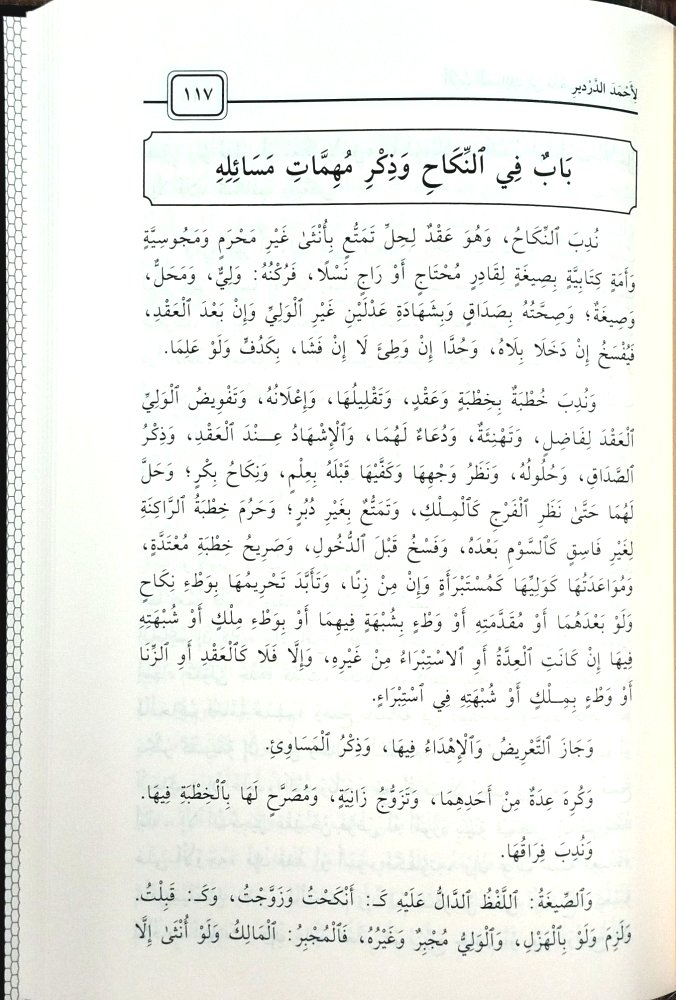 لِأَحْمَدَ الدَّرْدِيرِ
١١٧
بَابٌ فِي ٱلنِّكَاحِ وَذِكْرِ مُهِمَّاتِ مَسَائِلِهِ
نُدِبَ ٱلنِّكَاحُ، وَهُوَ عَقْدٌ لِحِلِّ تَمَتُّعٍ بِأُنْثَىٰ غَيْرِ مَحْرَمٍ وَمَجُوسِيَّةٍ
وَأَمَةٍ كِتَابِيَّةٍ بِصِيغَةٍ لِقَادِرٍ مُحْتَاجٍ أَوْ رَاجٍ نَسْلًا، فَرُكْنُهُ: وَلِيٌّ، وَمَحَلٌّ،
وَصِيغَةٌ؛ وَصِحَّتُهُ بِصَدَاقٍ وَبِشَهَادَةِ عَدْلَيْنِ غَيْرِ ٱلْوَلِيِّ وَإِنْ بَعْدَ ٱلْعَقْدِ،
فَيُفْسَخُ إِنْ دَخَلَا بِلَاهُ، وَحُدَّا إِنْ وَطِئَ لَا إِنْ فَشَا، بِكَدُفٍّ وَلَوْ عَلِمَا.
وَنُدِبَ خُطْبَةٌ بِخِطْبَةٍ وَعَقْدٍ، وَتَقْلِيلُهَا، وَإِعْلَانُهُ، وَتَفْوِيضُ ٱلْوَلِيِّ
ٱلْعَقْدَ لِفَاضِلٍ، وَتَهْنِئَةٌ، وَدُعَاءٌ لَهُمَا، وَٱلْإِشْهَادُ عِنْدَ ٱلْعَقْدِ، وَذِكْرُ
ٱلصَّدَاقِ، وَحُلُولُهُ، وَنَظَرُ وَجْهِهَا وَكَفَّيْهَا قَبْلَهُ بِعِلْمٍ، وَنِكَاحُ بِكْرٍ؛ وَحَلَّ
لَهُمَا حَتَّىٰ نَظَرِ ٱلْفَرْجِ كَٱلْمِلْكِ، وَتَمَتُّعٌ بِغَيْرِ دُبُرٍ؛ وَحَرُمَ خِطْبَةُ ٱلرَّاكِنَةِ
لِغَيْرِ فَاسِقٍ كَٱلسَّوْمِ بَعْدَهُ، وَفَسْخُ قَبْلَ ٱلدُّخُولِ، وَصَرِيحُ خِطْبَةِ مُعْتَدَّةٍ،
وَمُوَاعَدَتُهَا كَوَلِيِّهَا كَمُسْتَبْرَأَةٍ وَإِنْ مِنْ زِنًا، وَتَأَبَّدَ تَحْرِيمُهَا بِوَطْءِ نِكَاحٍ
وَلَوْ بَعْدَهُمَا أَوْ مُقَدَّمَتِهِ أَوْ وَطْءٍ بِشُبْهَةٍ فِيهِمَا أَوْ بِوَطْءِ مِلْكٍ أَوْ شُبْهَتِهِ
فِيهَا إِنْ كَانَتِ ٱلْعِدَّةُ أَوِ ٱلاسْتِبْرَاءُ مِنْ غَيْرِهِ، وَإِلَّا فَلَا كَٱلْعَقْدِ أَوِ ٱلزِّنَا
أَوْ وَطْءٍ بِمِلْكٍ أَوْ شُبْهَتِهِ فِي ٱسْتِبْرَاءٍ.
وَجَازَ ٱلتَّعْرِيضُ وَٱلْإِهْدَاءُ فِيهَا، وَذِكْرُ ٱلْمَسَاوِئِ.
وَكُرِهَ عِدَةٌ مِنْ أَحَدِهِمَا، وَتَزَوُّجُ زَانِيَةٍ، وَمُصَرَّحٍ لَهَا بِٱلْخِطْبَةِ فِيهَا.
وَنُدِبَ فِرَاقُهَا.
وَٱلصِّيغَةُ: ٱللَّفْظُ ٱلدَّالُّ عَلَيْهِ كَـ: أَنْكَحْتُ وَزَوَّجْتُ، وَكَـ: قَبِلْتُ.
وَلَزِمَ وَلَوْ بِٱلْهَزْلِ، وَٱلْوَلِيُّ مُجْبِرٌ وَغَيْرُهُ، فَٱلْمُجْبِرُ: ٱلْمَالِكُ وَلَوْ أُنْثَىٰ إِلَّا